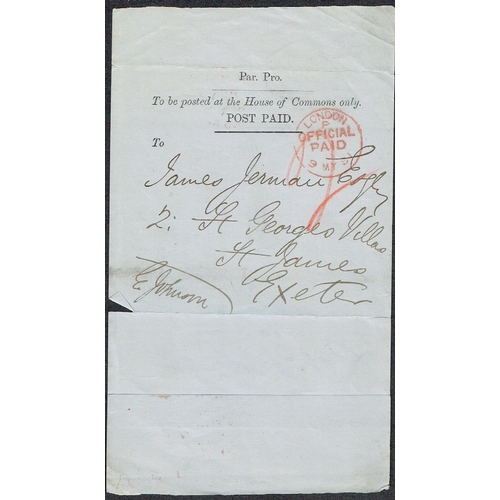 Par. Pro.
To be posted at the House of Commons only.
POST PAID.
LONDON
P
OFFICIAL
PAID
9 MY
To
James Jerman Esqr
2. St Georges Villas
St James
Exeter
E Johnson